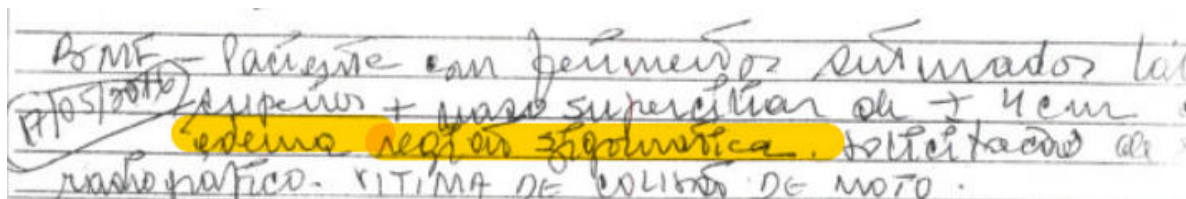 BMF - Paciente com ferimentos suturados
17/05/2016 superior + naso superciliar de ± 4 cm
edema região zigomática. solicitação de
radiográfico. VITIMA DE COLISÃO DE MOTO.